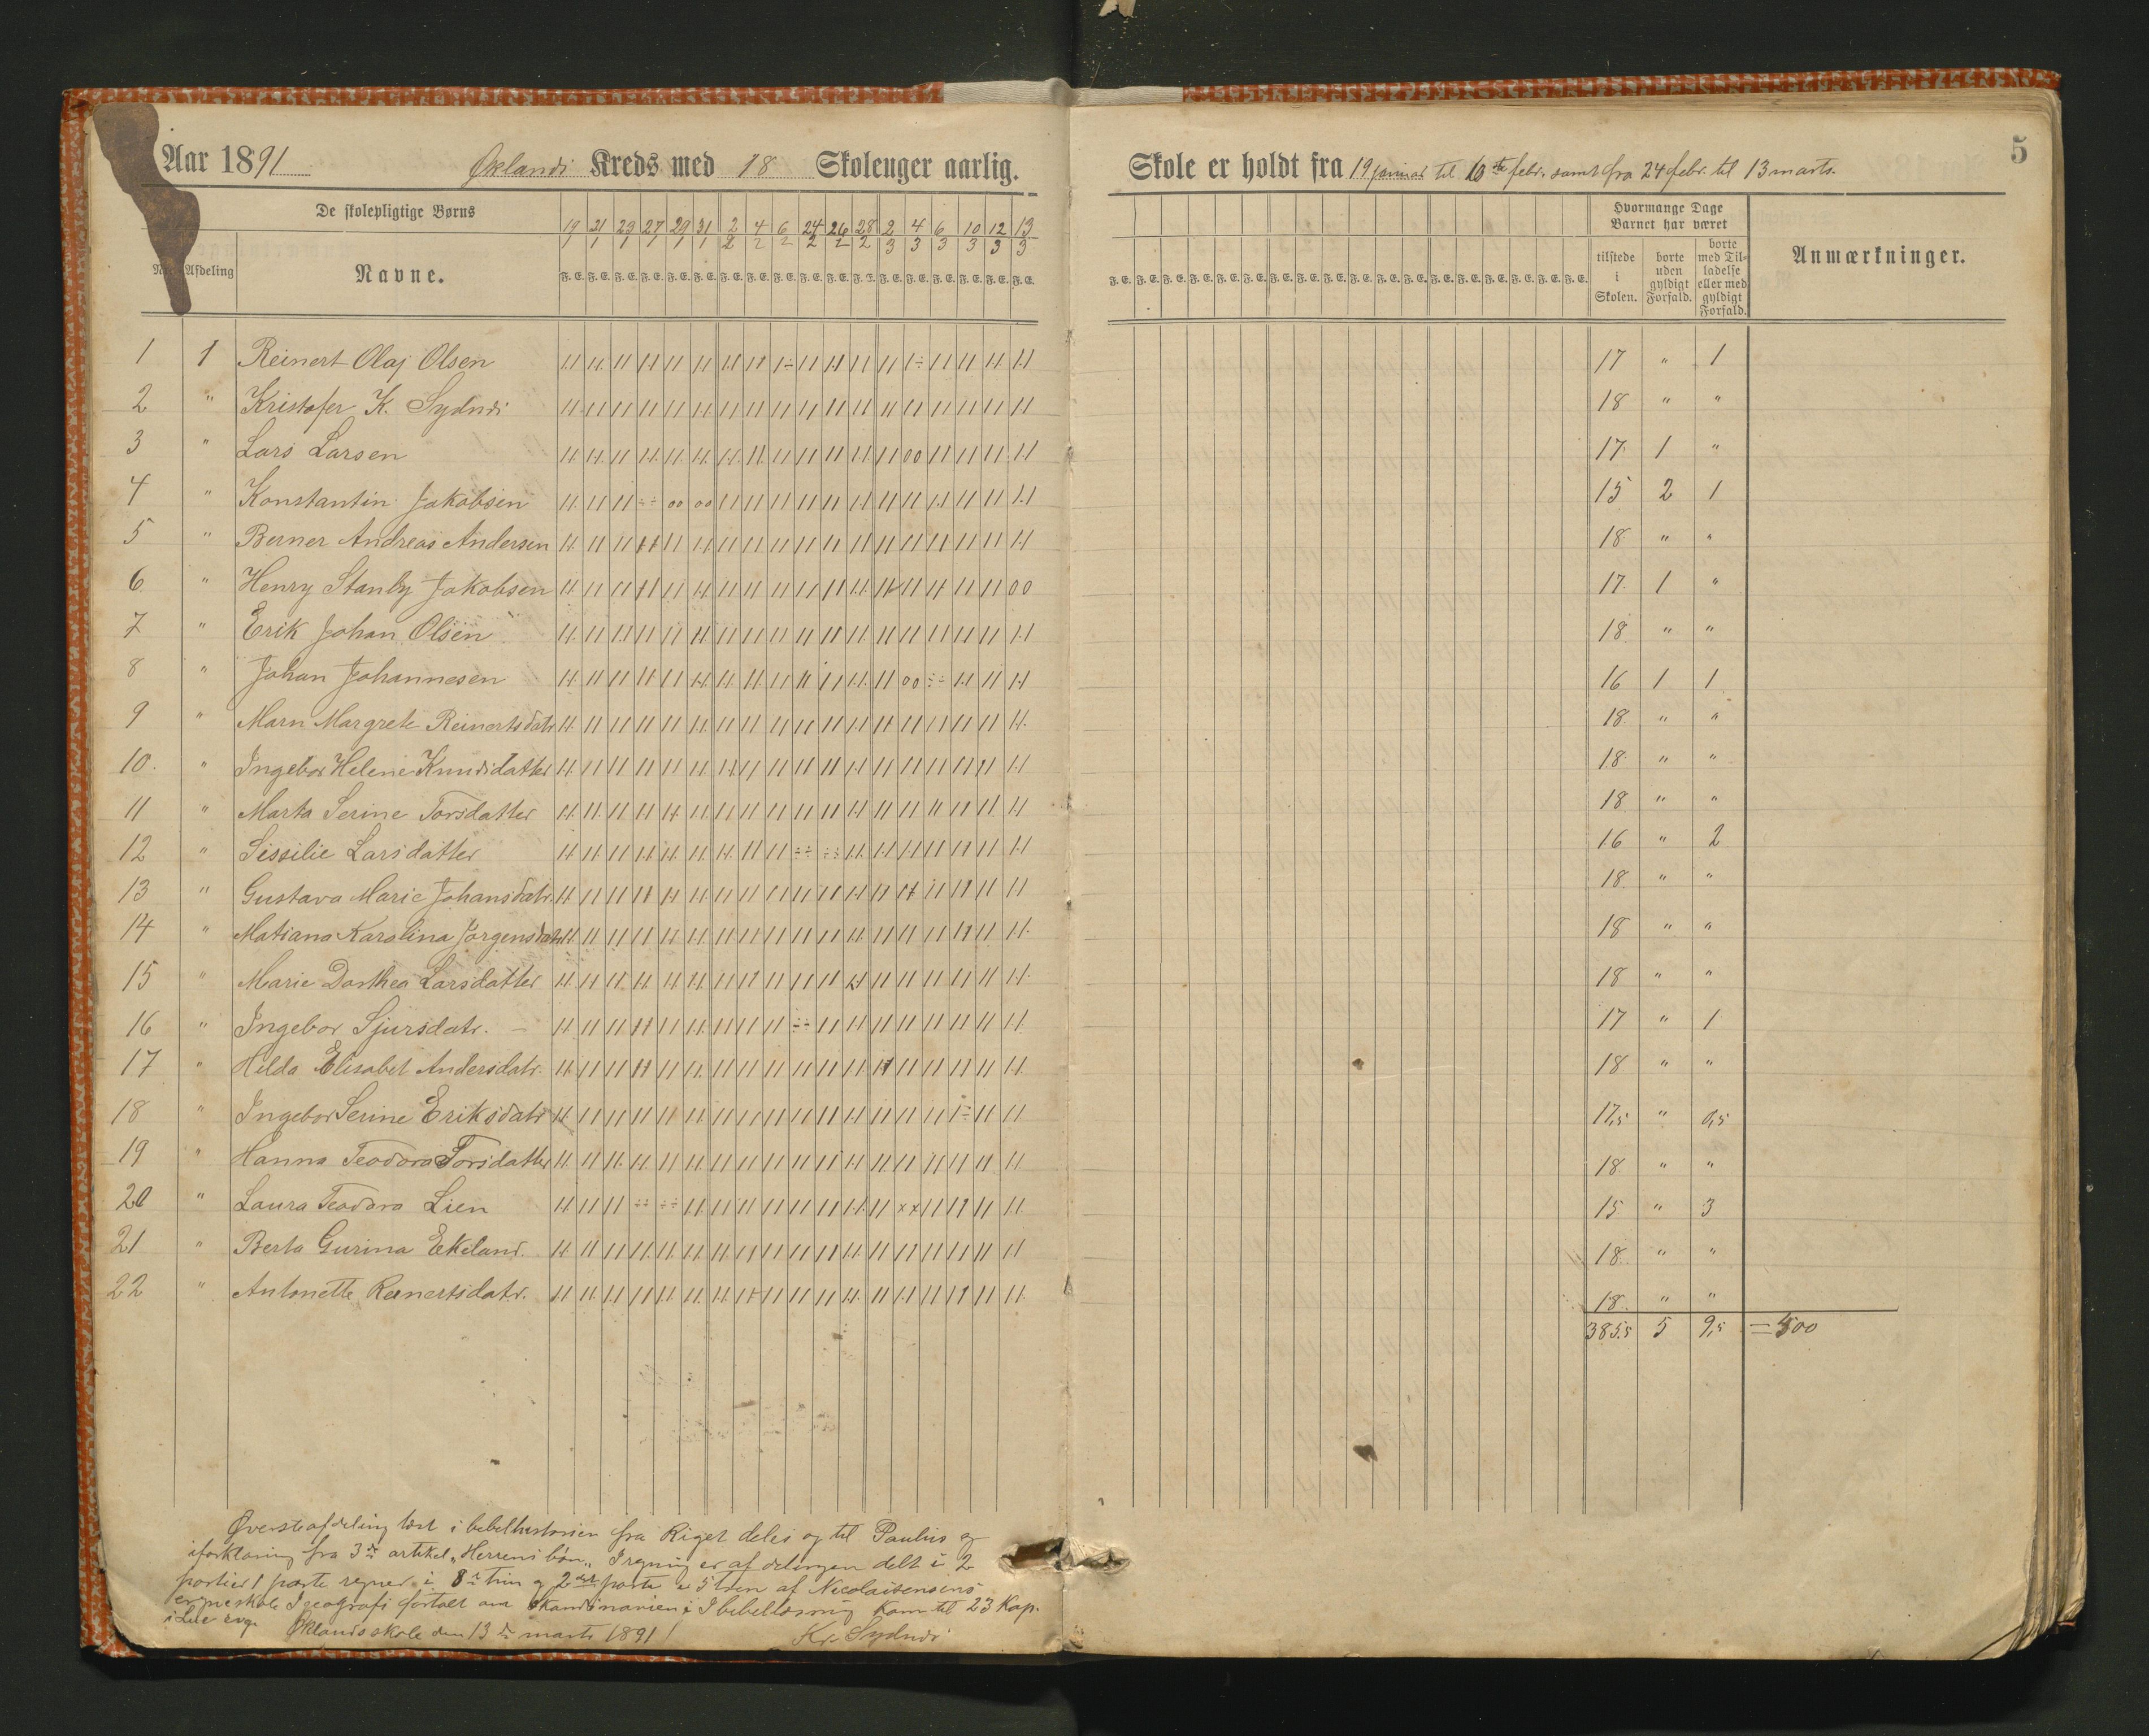 5
Aar 1891 Øklands Kreds med 18 Skoleuger aarlig. Skole er holdt fra 19 januar til 10de febr. samt fra 24 febr. til 13 marts.
De skolepligtige Børns
Hvormange Dage Barnet har været
Afdeling Navne.
19/1 21/1 23/1 27/1 29/1 31/1 2/2 4/2 6/2 24/2 26/2 28/2 2/3 4/3 6/3 10/3 12/3 13/3
F. E. F. E. F. E. F. E. F. E. F. E. F. E. F. E. F. E. F. E. F. E. F. E. F. E. F. E. F. E. F. E. F. E. F. E.
tilstede i Skolen. borte uden gyldigt Forfald. borte med Tilladelse eller med gyldigt Forfald. Anmærkninger.
1 1 Reinert Olaj Olsen 17 " 1
2 " Kristofer K. Sydnes 18 " "
3 " Lars Larsen 17 1 "
4 " Konstantin Jakobsen 15 2 1
5 " Berner Andreas Andersen 18 " "
6 " Henry Stanly Jakobsen 17 1 "
7 " Erik Johan Olsen 18 " "
8 " Johan Johannesen 16 1 1
9 " Marn Margrete Reinertsdatr. 18 " "
10 " Ingebor Helene Knudsdatter 18 " "
11 " Marta Serine Torsdatter 18 " "
12 " Sissilie Larsdatter 16 " 2
13 " Gustava Marie Johansdatr. 18 " "
14 " Matiana Karolina Jørgensdatr. 18 " "
15 " Marie Dorthea Larsdatter 18 " "
16 " Ingebor Sjursdatr. 17 " 1
17 " Hilda Elisabet Andersdatr. 18 " "
18 " Ingebor Serine Eriksdatr 17,5 " 0,5
19 " Hanna Teodora Torsdatter 18 " "
20 " Laura Teodora Lien 15 " 3
21 " Berta Gurina Ekeland. 18 " "
22 " Antonette Reinertsdatr. 18 " "
385,5 5 9,5 = 400
Øversteafdeling læst i bibelhistorien fra Riget deles og til Paulus og
iforklaring fra 3de artikel "Herrens bøn". I regning er afdelingen delt i 2
partier 1 parte regner i 8de trin og 2det parte i 5 trin af Nicolaisensens
I geografi fortalt om Skandinavien i I bibellæsning kom til 23 Kap.
i Luc evg. Øklands skole den 13de marts 1891 Kr. Sydnes